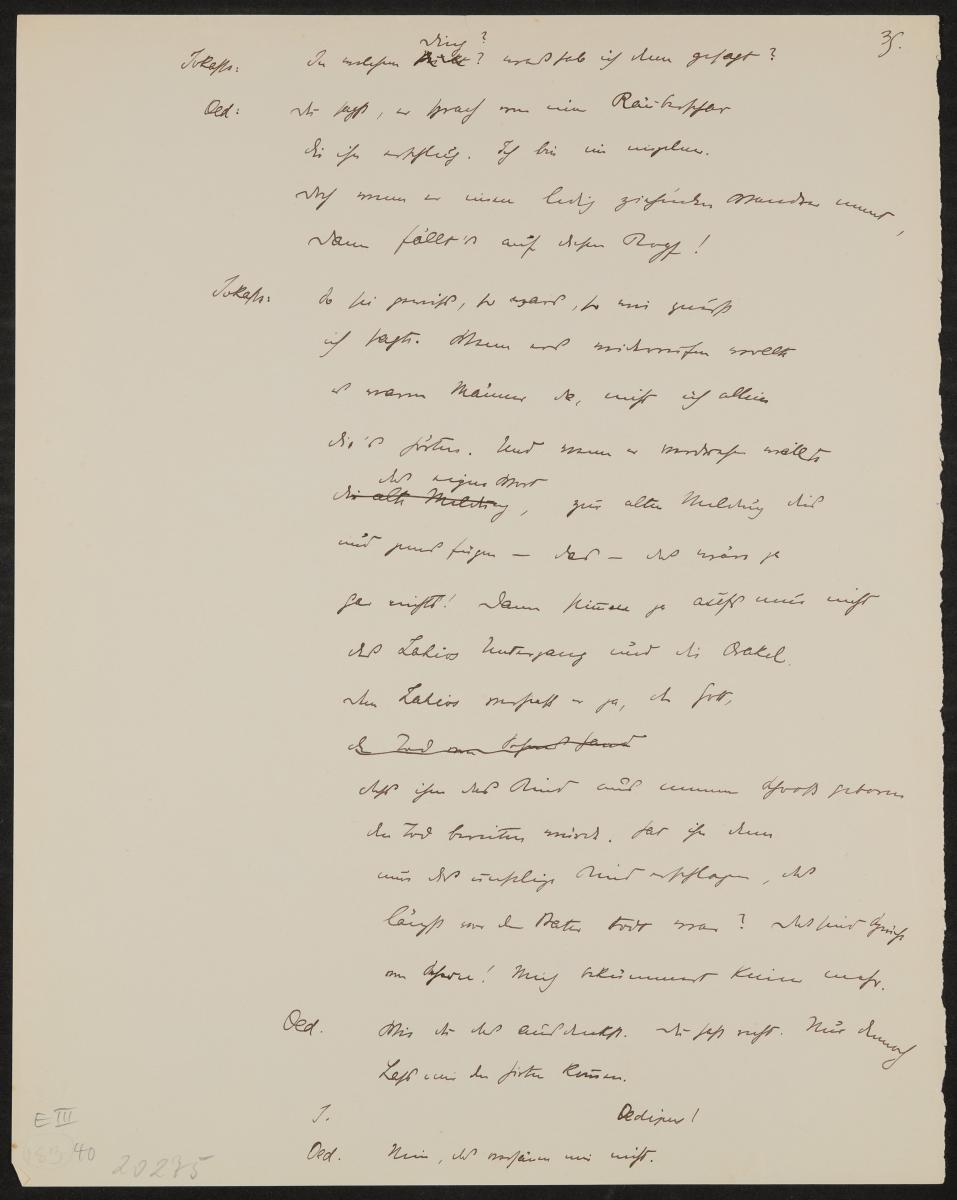 35.
Ding?
Jokaste: In welchem Punkt? was hab ich denn gesagt?
Oed: du sagst, er sprach von einer Räuberschar
die ihn erschlug. Ich bin nur
doch wenn er einen ledig ziehenden Wandrer nennt,
Dann fällt's auf diesen Kopf!
Jokaste: So sei gewiss, so wars, so wie zuerst
ich sagte. Wenn ers widerrufen wollte
es waren Männer da, nicht ich allein
die's hörten. Und wenn er verdrehen wollte
das eigne Wort
die alte Meldung, zur alten Meldung dies
und jenes fügen – das – das wäre ja
gar nichts! Dann stimmen ja aufs neue nicht
des Laïos Untergang und die Orakel.
dem Laïos verhiess er ja, der Gott,
den Tod von Sohnes Hand
dass ihm das Kind aus meinem Schooß geboren
den Tod bereiten würde. Hat ihn denn
nun das unselige Kind erschlagen, das
längst vor dem Vater todt war? das sind Sprüche
von Sehern! Mich bekümmert keiner mehr.
Oed. Wie du das ausdenkst. du hast recht. Nur dennoch
Lass mir den Hirten kommen.
J. Oedipus!
Oed. Nein, das versäum mir nicht.
E III
183 40
20275